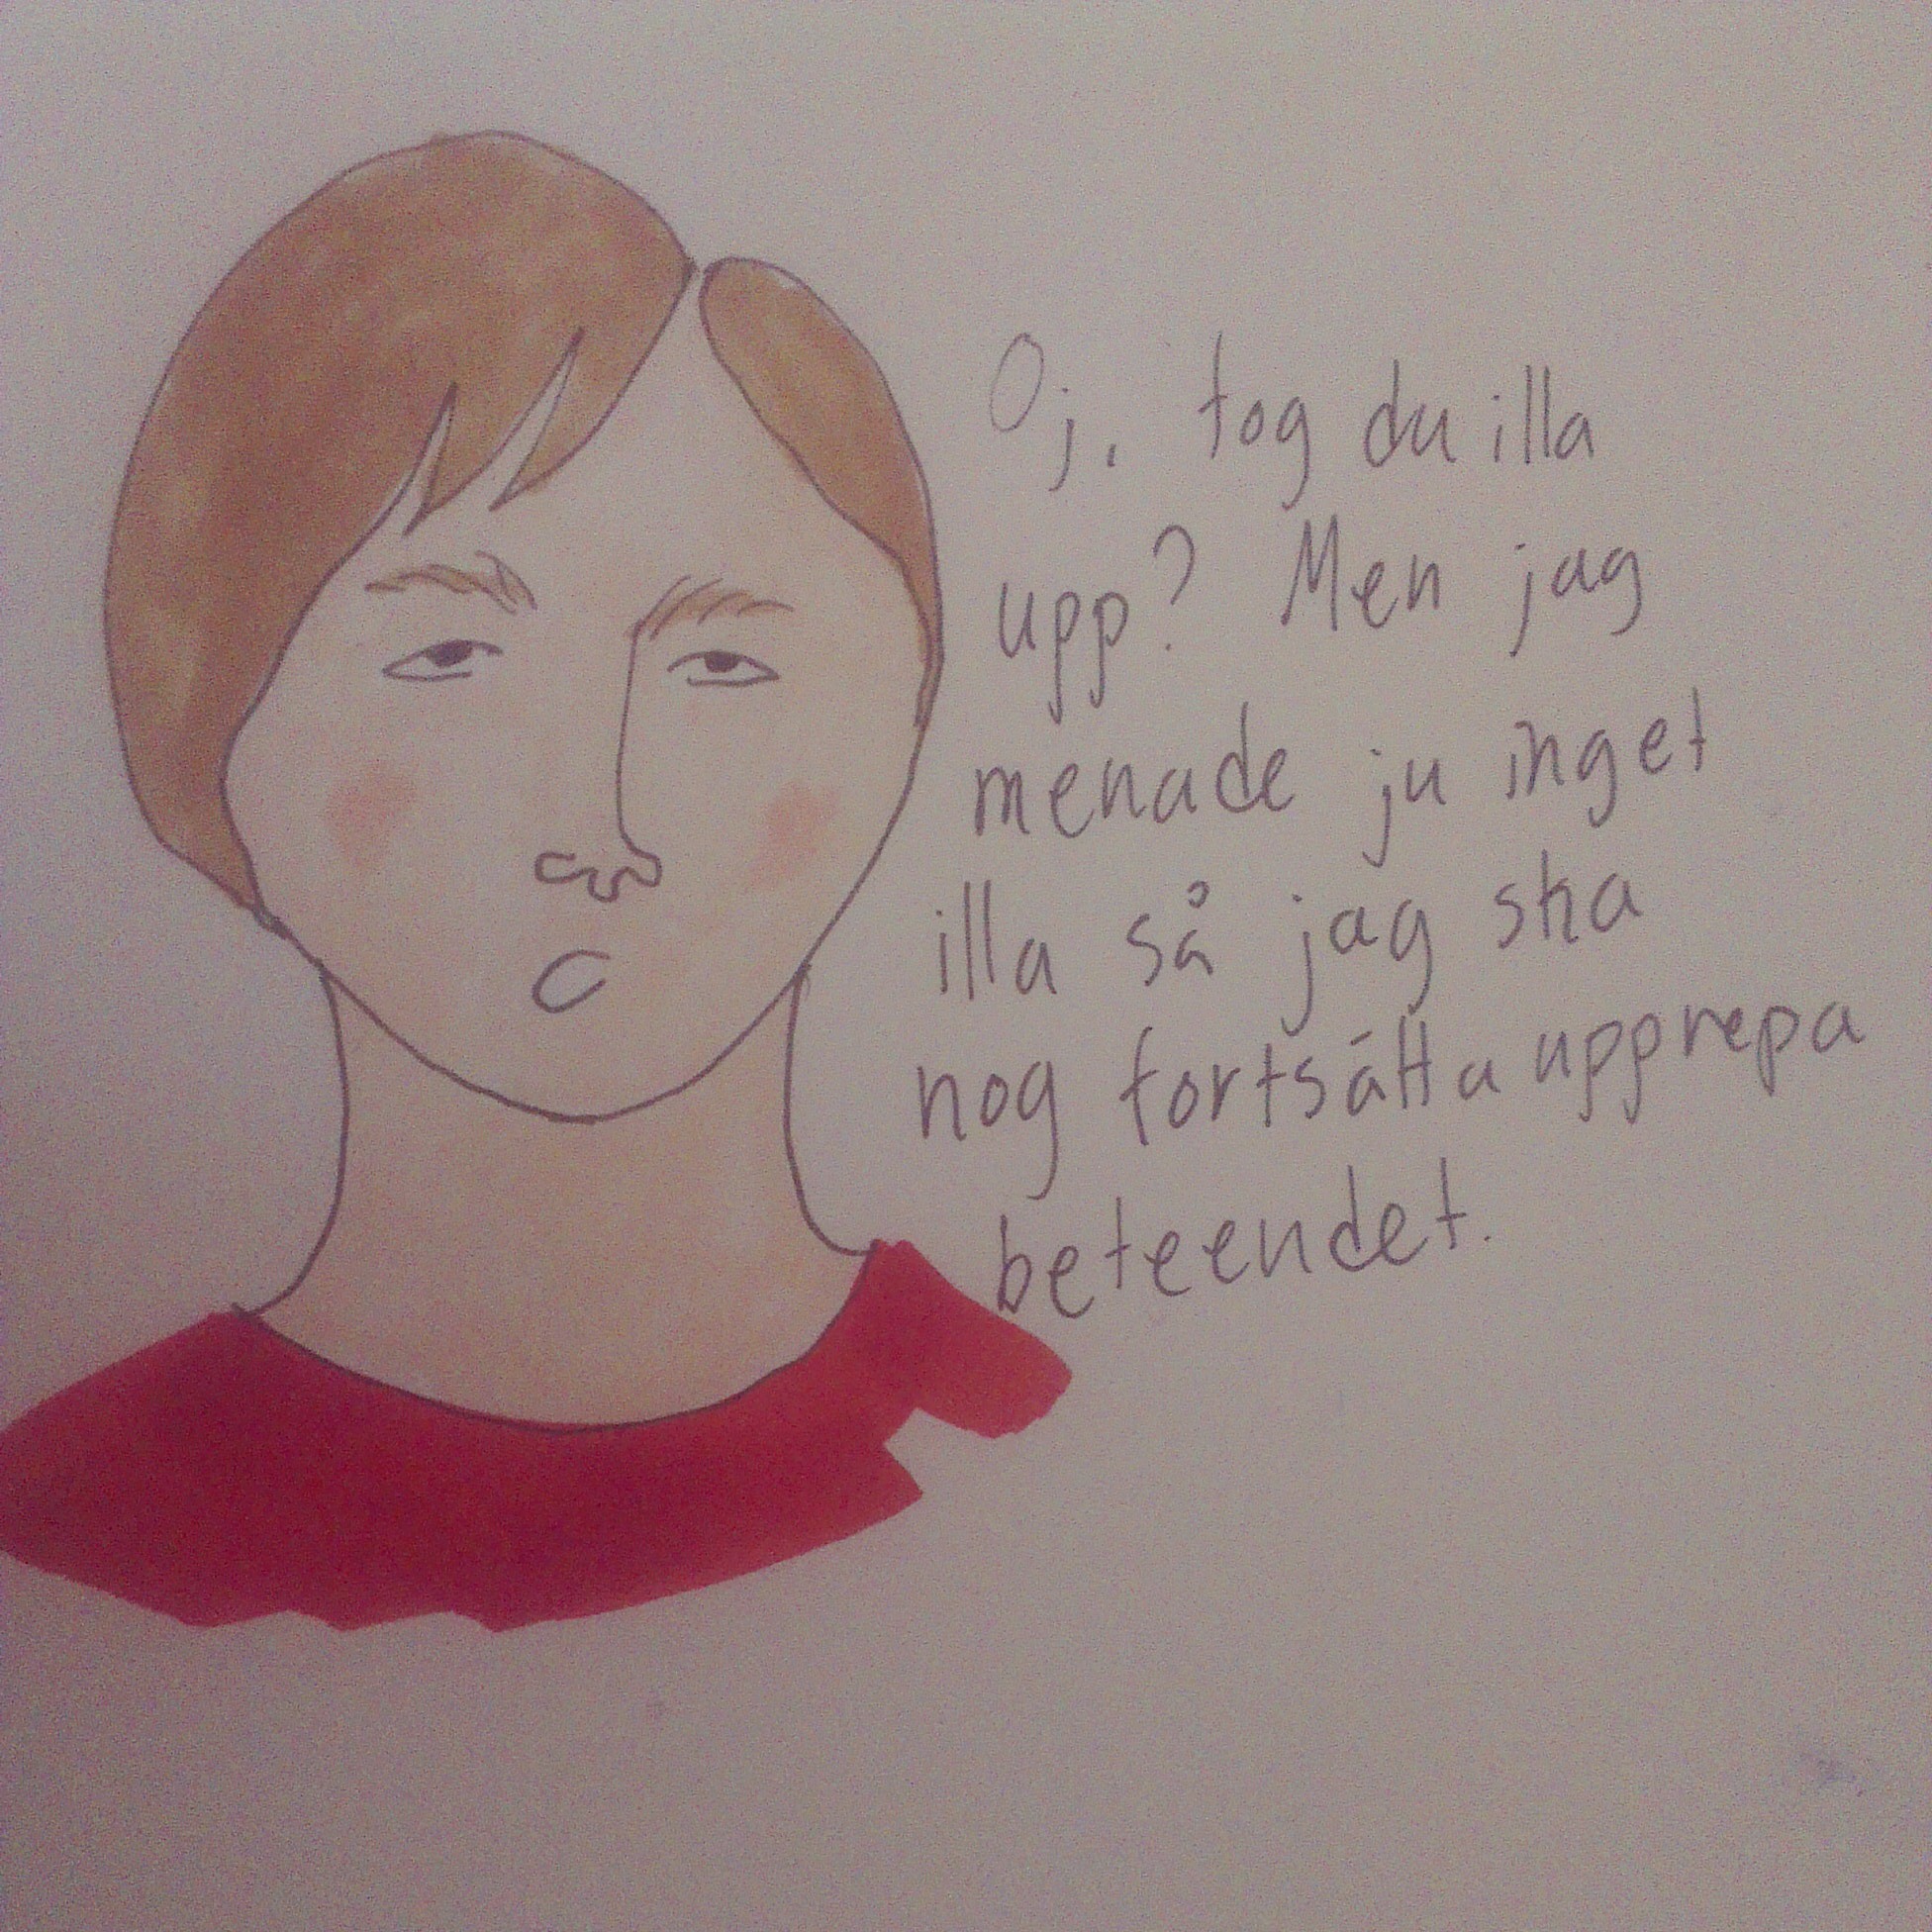 Oj. tog du illa
upp? Men jag
menade ju inget
illa så jag ska
nog fortsätta upprepa
beteendet.